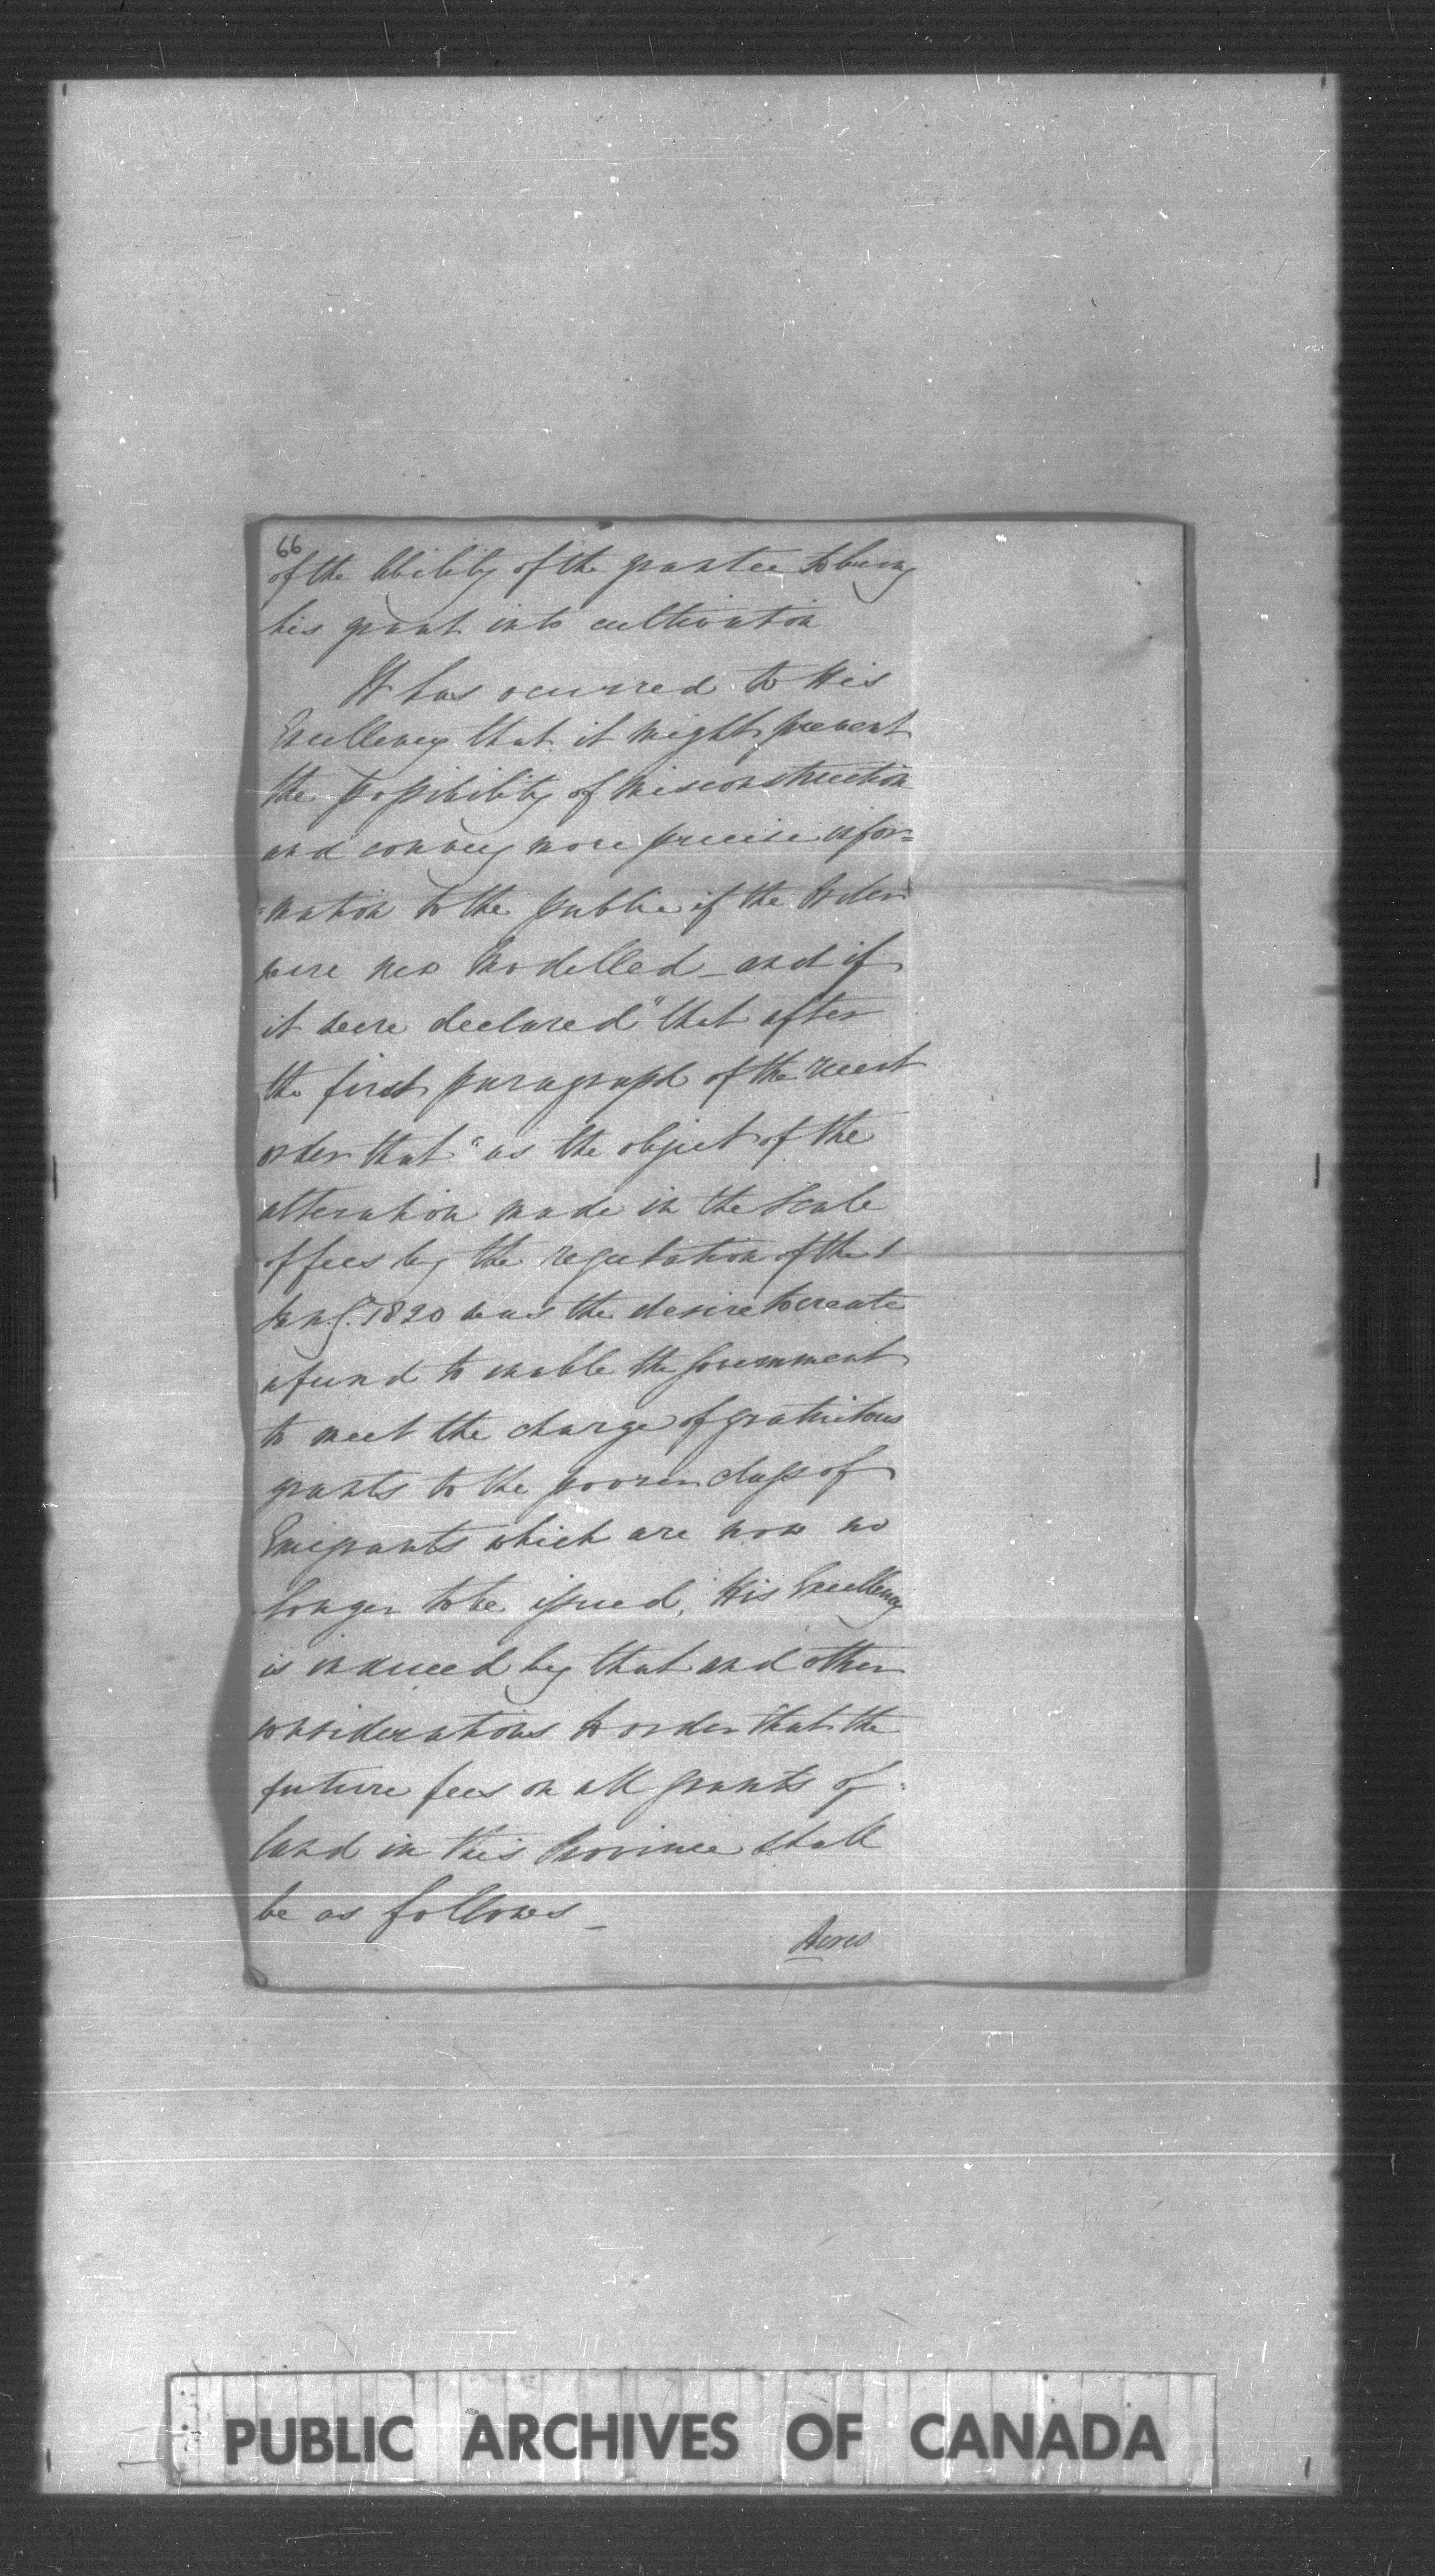 66
of the Ability of the grantee to bring
his grant into cultivation
It has ocurred to His
Excellency that it might prevent
the possibility of misconstruction
and convey more precise infor=
=mation to the public if the Order
were new modelled - and if
it were declared "that after
the first paragraph of the recent
order that "as the object of the
alteration made in the Scale
of fees by the regulation of the 1
Jany. 1820 was the desire to create
a fund to enable the Government
to meet the charge of gratuitous
grants to the poorer class of
Emigrants which are now no
longer to be issued, His Excellency
is induced by that and other
considerations to order "that the
future fees on all grants of
land in this Province shall
be as follows -
Acres
PUBLIC ARCHIVES OF CANADA